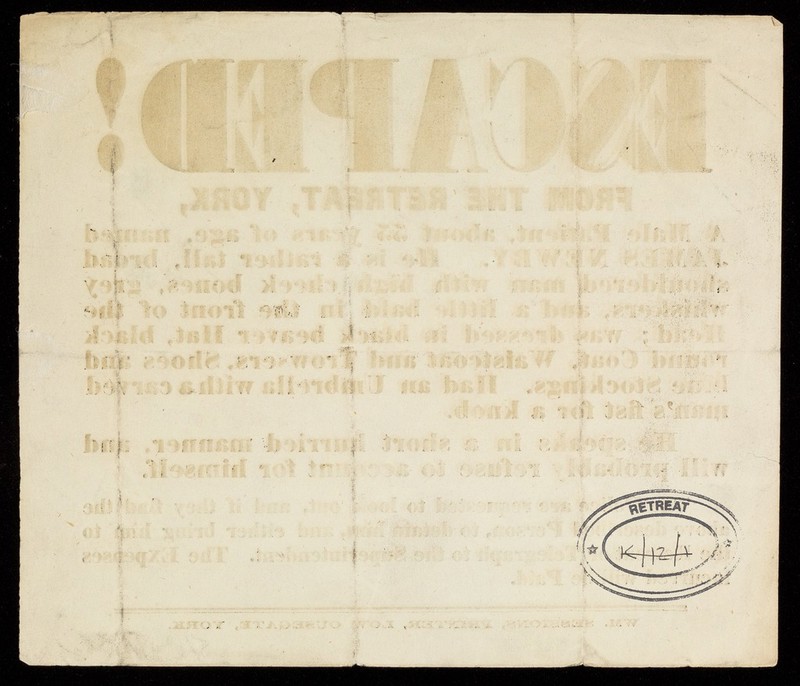 ESCAPED!
FROM THE RETREAT, YORK,
A Male Patient, about 55 years of age, named
JAMES NEWBY. He is a rather tall, broad
shouldered man with high cheek bones, grey
whiskers, and a little bald in the front of the
Head; was dressed in black beaver Hat, black
round Coat, Waistcoat and Trowsers, Shoes and
blue Stockings. Had an Umbrella with a carved
man's fist for a knob.
He speaks in a short hurried manner, and
will probably refuse to account for himself.
are requested to look out, and if they find the
above Person, to detain him, and either bring him to
the Telegraph to the Superintendent. The Expenses
incurred will be Paid.
WM. SESSIONS, PRINTER, LOW OUSEGATE, YORK.
RETREAT
K/12/1